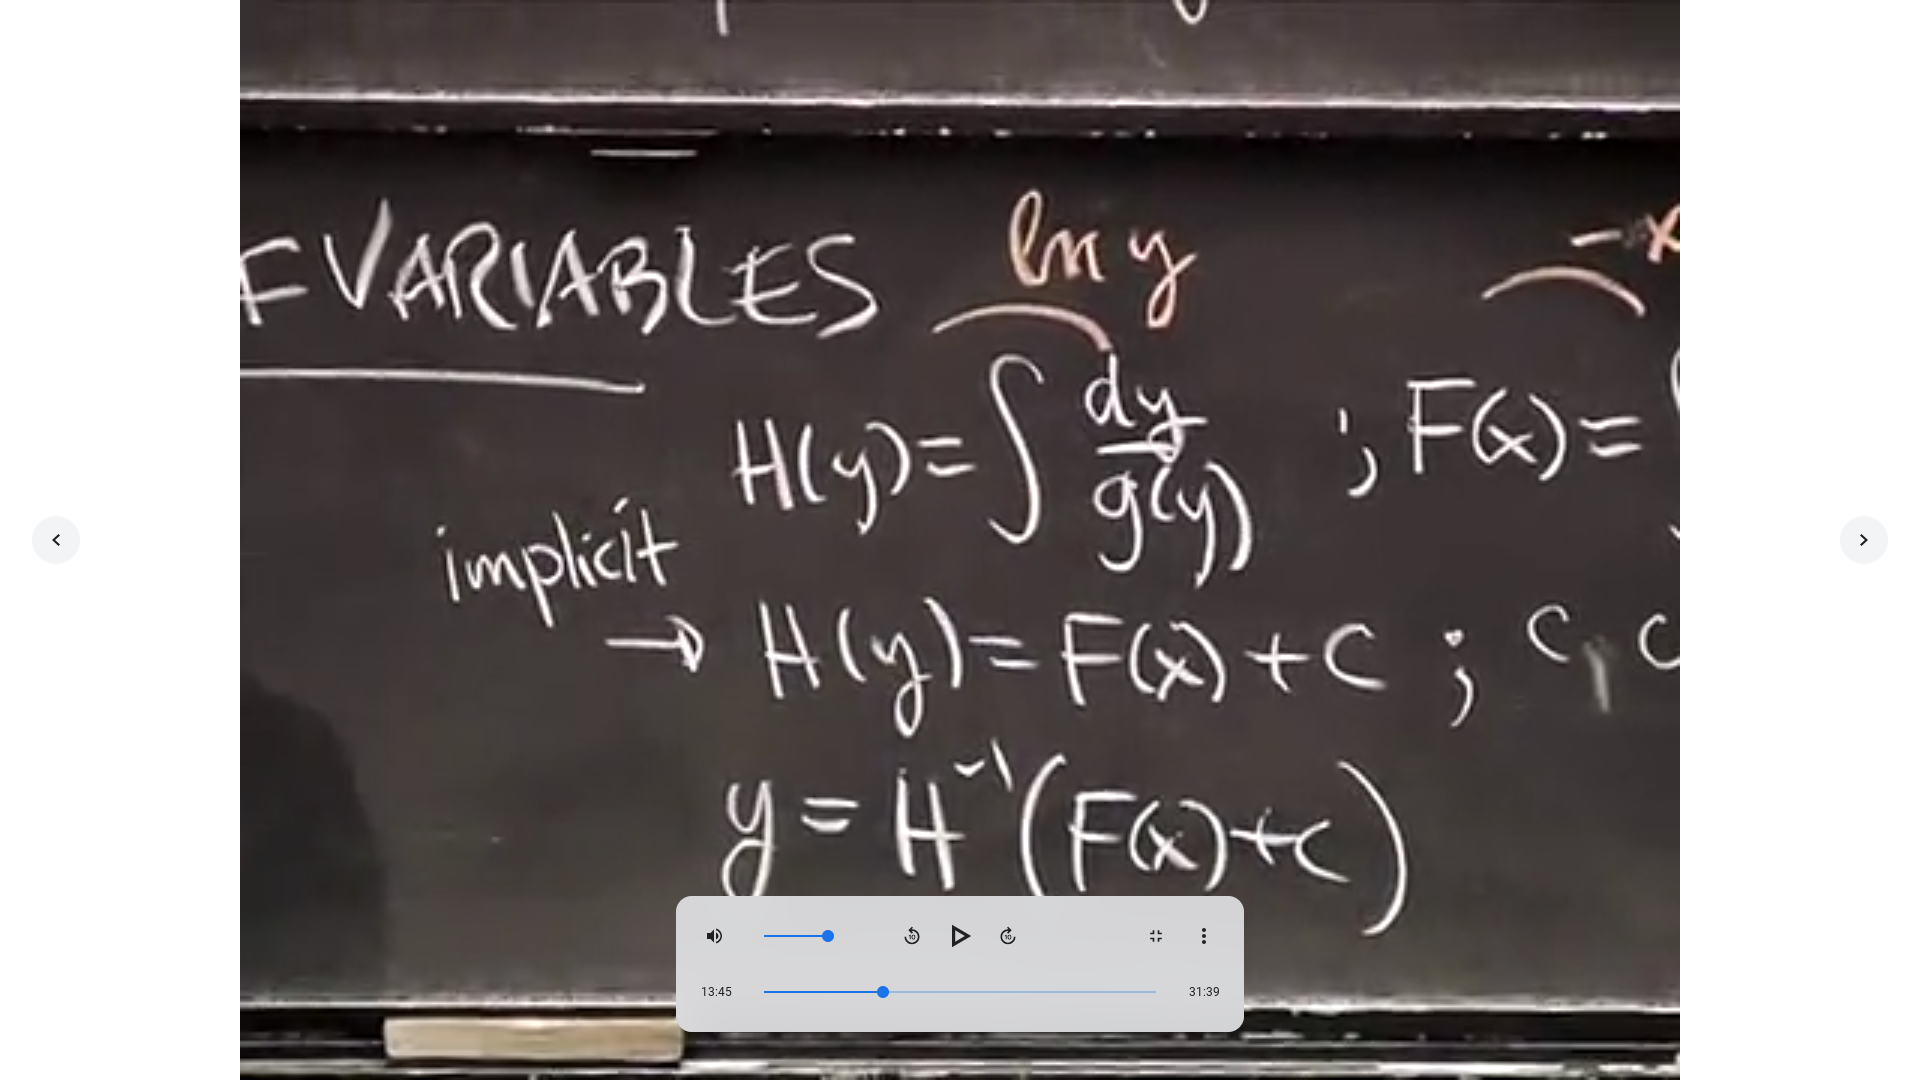 F VARIABLES
ln y
-x
H(y) = ∫ dy/g(y) ; F(x) =
implicit
→ H(y) = F(x) + c ; c, c
y = H⁻¹(F(x) + c)
10
10
13:45
31:39